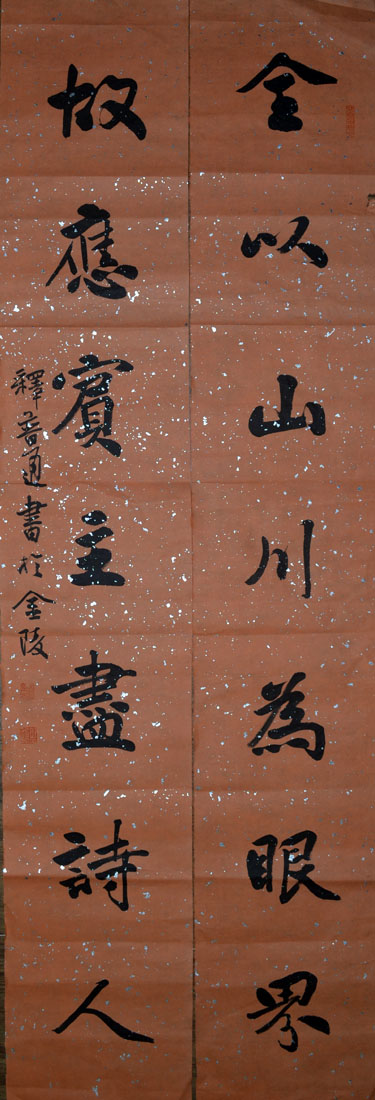 全以山川為眼界
故應賓主盡詩人
釋普通書於金陵